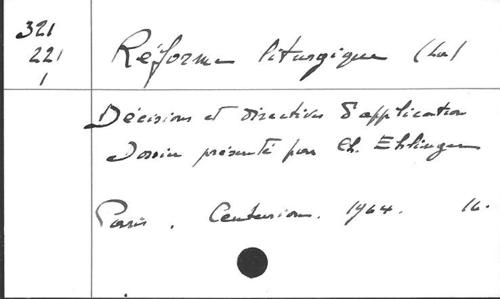 321
221
1
Réforme liturgique (La)
Décisions et directives d'application
Dossier présenté par Ch. Ehlinger
Paris. Centurion. 1964. 16.